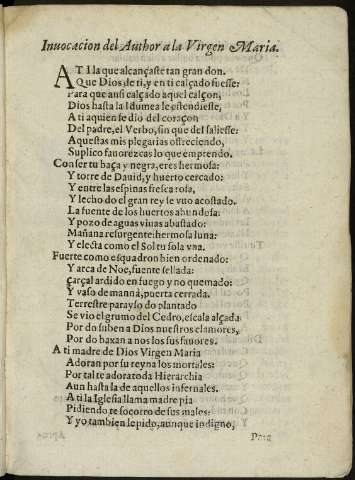 Inuocacion del Author a la Virgen Maria.
A TI la que alcançaste tan gran don.
Que Dios de ti, y en ti calçado fuesse:
Para que ansi calçado aquel calçon,
Dios hasta la Idumea le estendiesse,
A ti aquien se dió del coraçon
Del padre, el Verbo, sin que del saliesse:
Aquestas mis plegarias offreciendo,
Suplico fauorezcas lo que emprendo.
Con ser tu baça y negra, eres hermosa:
Y torre de Dauid, y huerto cercado:
Y entre las espinas fresca rosa,
Y lecho do el gran rey se vuo acostado.
La fuente de los huertos abundosa:
Y pozo de aguas viuas abastado:
Mañana resurgente: hermosa luna:
Y electa como el Sol tu sola vna.
Fuerte como esquadron bien ordenado:
Y arca de Noe, fuente sellada:
Çarçal ardido en fuego y no quemado:
Y vaso de manná, puerta cerrada.
Terrestre parayso do plantado
Se vio el grumo del Cedro, escala alçada
Por do suben a Dios nuestros clamores,
Por do baxan a nos los sus fauores.
A ti madre de Dios Virgen Maria
Adoran por su reyna los mortales:
Por tal te adora toda Hierarchia
Aun hasta la de aquellos infernales.
A ti la Iglesia llama madre pia
Pidiendo te socorro de sus males:
Y yo tambien le pido, aunque indigno,
Para